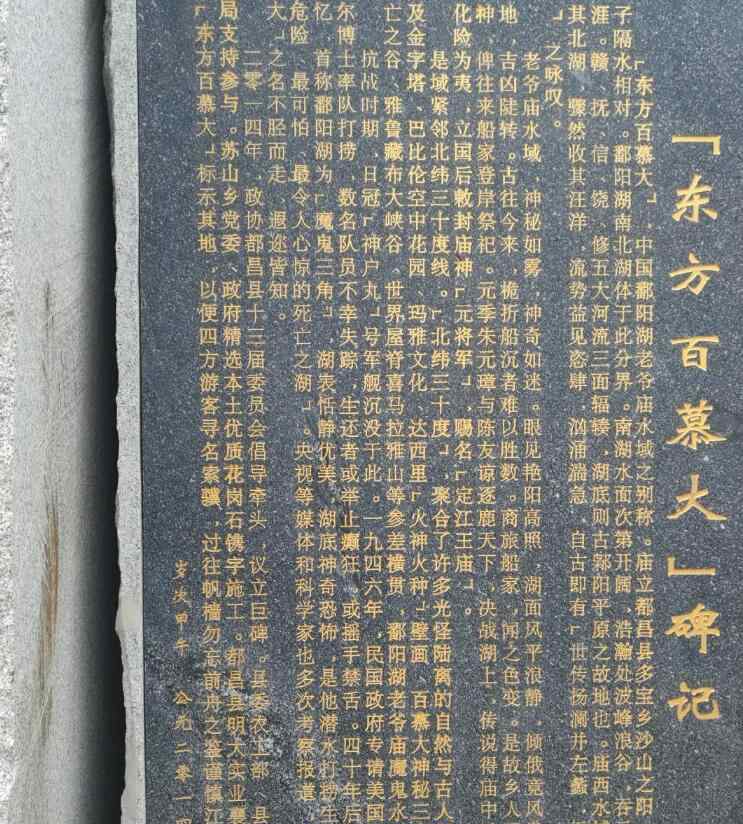 「东方百慕大」碑记
「东方百慕大」，中国鄱阳湖老爷庙水域之别称。庙立都昌县多宝乡沙山之阳
子隔水相对。鄱阳湖南北湖体于此分界。南湖水面次第开阔，浩瀚处波峰浪谷，吞
涯。赣、抚、信、饶、修五大河流三面辐辏，湖底则古鄡阳平原之故地也。庙西水域
其北湖，骤然收其汪洋，流势益见恣肆，汹涌湍急，自古即有「世传扬澜并左蠡，
」之咏叹。
老爷庙水域，神秘如雾，神奇如迷。眼见艳阳高照，湖面风平浪静，倾俄竟风
地，古凶陡转。古往今来，桅折船沉者难以胜数。商旅船家，闻之色变。是故乡人
神，俾往来船家登岸祭祀。元季朱元璋与陈友谅逐鹿天下，决战湖上，传说得庙中
化险为夷，立国后敕封庙神「元将军」，赐名「定江王庙」。
是域紧邻北纬三十度线。「北纬三十度」，聚合了许多光怪陆离的自然与古人
及金字塔、巴比伦空中花园、玛雅文化、达西里「火神火种」壁画、百慕大神秘三
亡之谷、雅鲁藏布大峡谷、世界屋脊喜马拉雅山等参差横贯，鄱阳湖老爷庙魔鬼水
抗战时期，日冠「神户丸」号军舰沉没于此。一九四六年，民国政府专请美国
尔博士率队打捞，数名队员不幸失踪，生还者或举止癫狂，或摇手禁舌。四十年后
忆，首称鄱阳湖为「魔鬼三角」，湖表恬静优美，湖底神奇恐怖，是他潜水打捞生
危险、最可怕、最令人心惊的死亡之湖」。央视等媒体和科学家也多次考察报道
大」之名不胫而走，遐迩皆知。
二零一四年，政协都昌县十三届委员会倡导牵头，议立巨碑。县委农工部、县
局支持参与。苏山乡党委、政府精选本土优质花岗石镌字施工。都昌县明大实业襄
「东方百慕大」标示其地，以便四方游客寻名索骥，过往帆樯勿忘前舟之鉴谨慎江
岁次甲午 公元二零一四